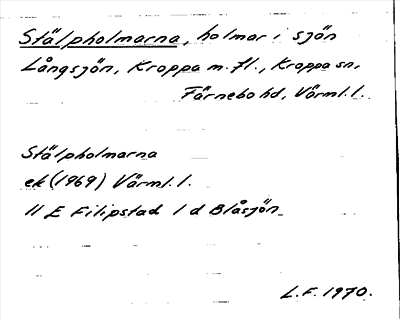 Stälpholmarna, holmar i sjön
Långsjön, Kroppa m.fl., Kroppa sn,
Färnebo hd, Värml.l.
Stälpholmarna
ek (1969) Värml.l.
11 E Filipstad 1 d Blåsjön
L.F. 1970.